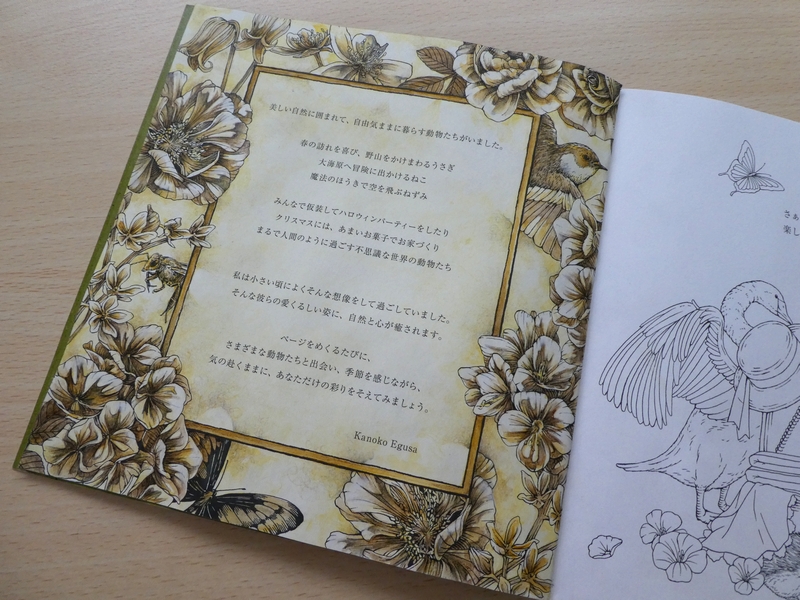 美しい自然に囲まれて、自由気ままに暮らす動物たちがいました。
春の訪れを喜び、野山をかけまわるうさぎ
大海原へ冒険に出かけるねこ
魔法のほうきで空を飛ぶねずみ
みんなで仮装してハロウィンパーティーをしたり
クリスマスには、あまいお菓子でお家づくり
まるで人間のように過ごす不思議な世界の動物たち
私は小さい頃によくそんな想像をして過ごしていました。
そんな彼らの愛くるしい姿に、自然と心が癒されます。
ページをめくるたびに、
さまざまな動物たちと出会い、季節を感じながら、
気の赴くままに、あなただけの彩りをそえてみましょう。
Kanoko Egusa
さぁ
楽し